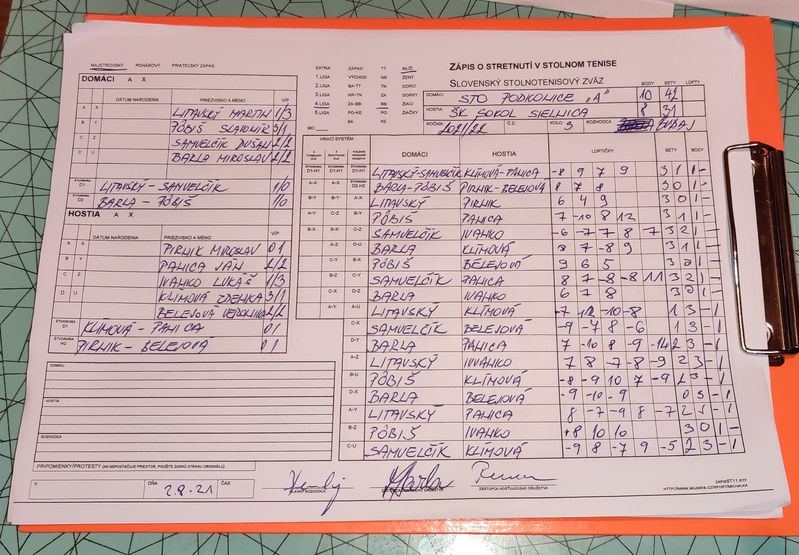 MAJSTROVSKÝ POHÁROVÝ PRIATEĽSKÝ ZÁPAS
EXTRA ZÁPAD TT MUŽI
1.LIGA VÝCHOD NR ŽENY
2.LIGA BA-TT TN DORCI
3.LIGA NR-TN ZA DORKY
4.LIGA ZA-BB BB ŽIACI
5.LIGA PO-KE PO ŽIAČKY
BA KE
MO
ZÁPIS O STRETNUTÍ V STOLNOM TENISE
SLOVENSKÝ STOLNOTENISOVÝ ZVÄZ
BODY SETY LOPTY
DOMÁCI STO PODKONICE "A" 10 42
HOSTIA ŠK SOKOL SIELNICA 8 31
ROČNÍK 2021/22 Č.Z. KOLO 3 ROZHODCA
DOMÁCI A X
DÁTUM NARODENIA PRIEZVISKO A MENO V/P
A X LITAVSKÝ MARTIN 1/3
B Y PÓBIŠ SLAVOMÍR 3/1
C Z SAMUELČÍK DUŠAN 2/2
D U BARLA MIROSLAV 2/2
ŠTVORHRA D1 LITAVSKÝ - SAMUELČÍK 1/0
ŠTVORHRA D2 BARLA - PÓBIŠ 1/0
HOSTIA A X
DÁTUM NARODENIA PRIEZVISKO A MENO V/P
A X PIRNIK MIROSLAV 0 1
B Y PANICA JÁN 2/2
C Z IVANKO LUKÁŠ 1/3
D U KLÍMOVÁ ZDENKA 3/1
BELEJOVÁ VERONIKA 2/2
ŠTVORHRA D1 KLÍMOVÁ - PANICA 0 1
ŠTVORHRA H2 PIRNIK - BELEJOVÁ 0 1
HRACÍ SYSTÉM
DOMÁCI HOSTIA LOPTIČKY SETY BODY
D1-H1 LITAVSKÝ-SAMUELČÍK KLÍMOVÁ-PANICA -8 9 7 9 3 1 1 -
D2-H2 BARLA-PÓBIŠ PIRNIK-BELEJOVÁ 8 7 8 3 0 1 -
A-X LITAVSKÝ PIRNIK 6 4 9 3 0 1 -
B-Y PÓBIŠ PANICA 7 -10 8 12 3 1 1 -
C-Z SAMUELČÍK IVANKO -6 -7 7 8 7 3 2 1 -
D-U BARLA KLÍMOVÁ 7 -8 9 3 1 1 -
B-X PÓBIŠ BELEJOVÁ 9 6 5 3 0 1 -
C-Y SAMUELČÍK PANICA 8 7 -8 -8 11 3 2 1 -
D-Z BARLA IVANKO 6 7 8 3 0 1 -
A-U LITAVSKÝ KLÍMOVÁ -7 -12 -10 -8 1 3 - 1
C-X SAMUELČÍK BELEJOVÁ -9 -7 8 -6 1 3 - 1
D-Y BARLA PANICA 7 -10 8 -9 -14 2 3 - 1
A-Z LITAVSKÝ IVANKO 7 8 -7 -8 -9 2 3 - 1
B-U PÓBIŠ KLÍMOVÁ -8 -9 10 7 -9 2 3 - 1
D-X BARLA BELEJOVÁ -9 -10 -9 0 3 - 1
A-Y LITAVSKÝ PANICA 8 -7 -9 8 -7 2 3 - 1
B-Z PÓBIŠ IVANKO +8 10 10 3 0 1
C-U SAMUELČÍK KLÍMOVÁ -9 8 -7 9 -5 2 3 - 1
DOMÁCI
HOSTIA
ROZHODCA
PRIPOMIENKY/PROTESTY (AK NEPOSTAČUJE PRIESTOR, POUŽITE ZADNÚ STRANU ORIGINÁLU)
V DŇA 2.9.21 ČAS
HLAVNÝ ROZHODCA ZÁSTUPCA HOSŤUJÚCEHO DRUŽSTVA
ZAPISST11.RTF